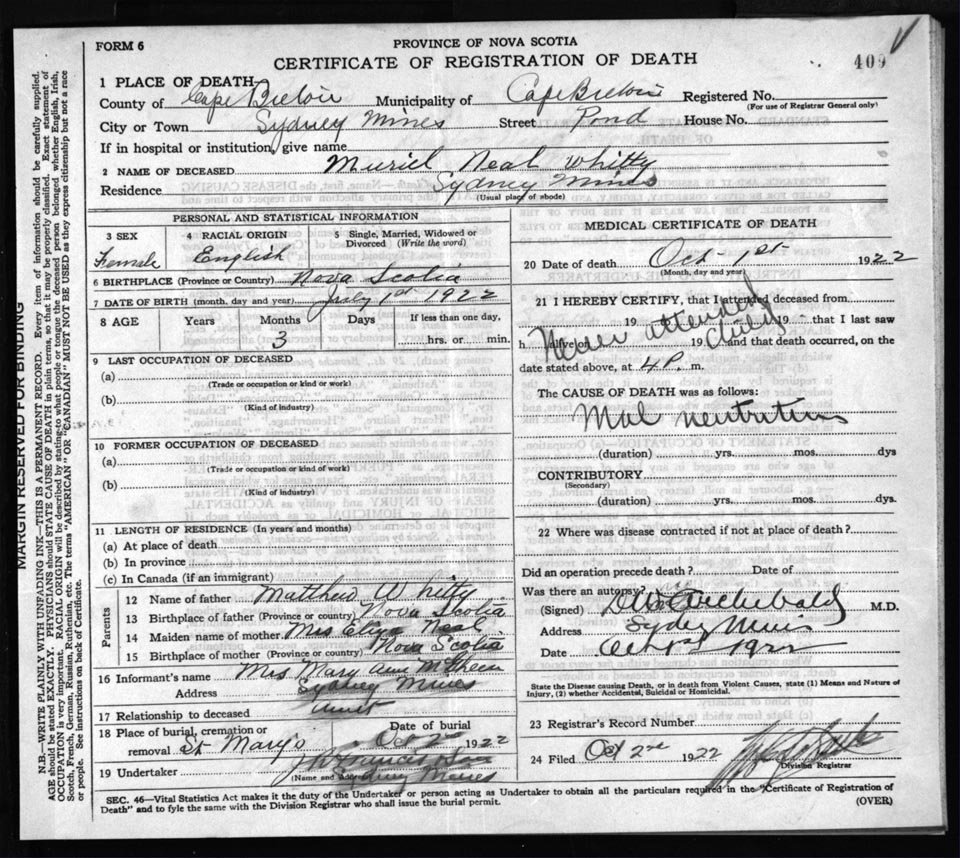 FORM 6
PROVINCE OF NOVA SCOTIA
CERTIFICATE OF REGISTRATION OF DEATH
409
1 PLACE OF DEATH
County of Cape Breton Municipality of Cape Breton Registered No.
(For use of Registrar General only)
City or Town Sydney Mines Street Pond House No.
If in hospital or institution, give name
2 NAME OF DECEASED Muriel Neal Whitty
Residence Sydney Mines
(Usual place of abode)
PERSONAL AND STATISTICAL INFORMATION
3 SEX 4 RACIAL ORIGIN 5 Single, Married, Widowed or Divorced (Write the word)
Female English
6 BIRTHPLACE (Province or Country) Nova Scotia
7 DATE OF BIRTH (month, day and year) July 1st 1922
8 AGE Years Months Days If less than one day,
3 hrs. or min.
9 LAST OCCUPATION OF DECEASED
(a)
(Trade or occupation or kind or work)
(b)
(Kind of industry)
10 FORMER OCCUPATION OF DECEASED
(a)
(Trade or occupation or kind of work)
(b)
(Kind of industry)
11 LENGTH OF RESIDENCE (In years and months)
(a) At place of death
(b) In province
(c) In Canada (if an immigrant)
Parents
12 Name of father Matthew Whitty
13 Birthplace of father (Province or country) Nova Scotia
14 Maiden name of mother Mrs Eliza Neal
15 Birthplace of mother (Province or country) Nova Scotia
16 Informant's name Mrs. Mary Ann
Address Sydney Mines
17 Relationship to deceased Aunt
18 Place of burial, cremation or removal St Mary's
Date of burial
Oct 2 1922
19 Undertaker
(Name and address) Sydney Mines
MEDICAL CERTIFICATE OF DEATH
20 Date of death Oct 1st 1922
(Month, day and year)
21 I HEREBY CERTIFY, that I attended deceased from
19 19 that I last saw
h alive on 19 and that death occurred, on the
Never attended child
date stated above, at 4 P. m.
The CAUSE OF DEATH was as follows:
Mal neutrition
(duration) yrs. mos. dys
CONTRIBUTORY
(Secondary)
(duration) yrs. mos. dys.
22 Where was disease contracted if not at place of death?
Did an operation precede death? Date of
Was there an autopsy?
(Signed) Archibald M.D.
Address Sydney Mines
Date Oct 1922
State the Disease causing Death, or in death from Violent Causes, state (1) Means and Nature of
Injury, (2) whether Accidental, Suicidal or Homicidal.
23 Registrar's Record Number
24 Filed Oct 2nd 1922
Division Registrar
SEC. 46—Vital Statistics Act makes it the duty of the Undertaker or person acting as Undertaker to obtain all the particulars required in the "Certificate of Registration of
Death" and to fyle the same with the Division Registrar who shall issue the burial permit.
(OVER)
MARGIN RESERVED FOR BINDING
N.B.—WRITE PLAINLY WITH UNFADING INK—THIS IS A PERMANENT RECORD. Every item of information should be carefully supplied.
AGE should be stated EXACTLY. PHYSICIANS should STATE CAUSE OF DEATH in plain terms, so that it may be properly classified. Exact statement of
OCCUPATION is very important. RACIAL ORIGIN will be described by stating to what people or tongue the deceased person belonged whether English, Irish,
Scotch, French, German, Russian, Ruthenian, etc. The terms "AMERICAN" OR "CANADIAN" MUST NOT BE USED as they express citizenship but not a race
or people. See instructions on back of Certificate.